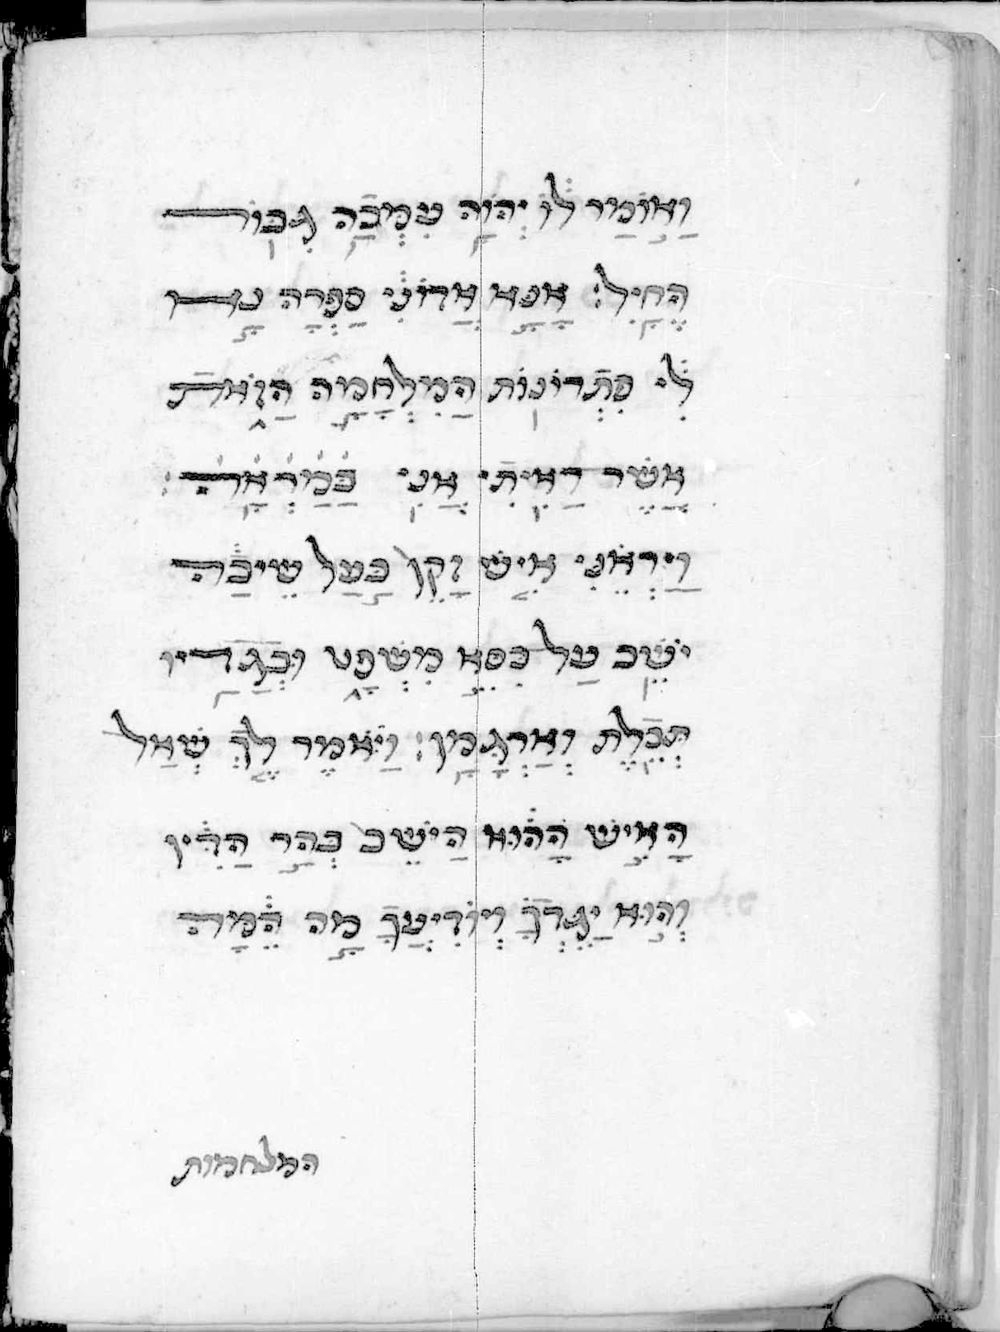 וָאוֹמַר לוֹ יְהוָה עִמְּכָה גִּבּוֹר
הֶחָיִל׃ אָנָּא אֲדוֹנִי סַפְּרָה נָא
לִי פִּתְרוֹנוֹת הַמִּלְחָמָה הַזֹּאת
אֲשֶׁר רָאִיתִי אֲנִי בַּמַּרְאָה׃
וַיִּרְאֵנִי אִישׁ זָקֵן בַּעַל שֵׂיבָה
יֹשֵׁב עַל כִּסֵּא מִשְׁפָּט וּבְגָדָיו
תְּכֵלֶת וְאַרְגָּמָן׃ וַיֹּאמֶר לֵךְ שְׁאַל
הָאִישׁ הַהוּא הַיֹּשֵׁב בְּהַר הַדִּין
וְהוּא יַגֶּדְךָ וְיוֹדִיעֲךָ מָה הֵמָּה
המלחמות